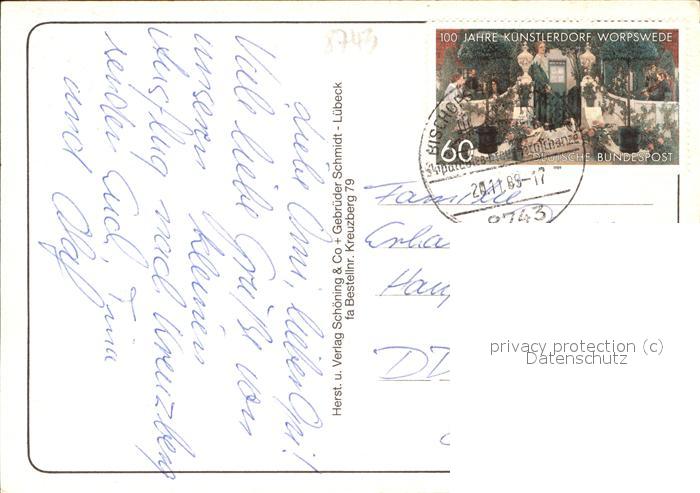 8743
Liebe Omi, lieber Opi!
Viele liebe Grüße von
unserm kleinen
Ausflug nach Kreuzberg
senden Euch, Trina
und Olaf
Herst. u. Verlag Schöning & Co + Gebrüder Schmidt - Lübeck
fa Bestellnr. Kreuzberg 79
100 JAHRE KÜNSTLERDORF WORPSWEDE
60
DEUTSCHE BUNDESPOST
BISCHOFS
20.11.89-17
8743
Familie
Hau
DD
privacy protection (c)
Datenschutz